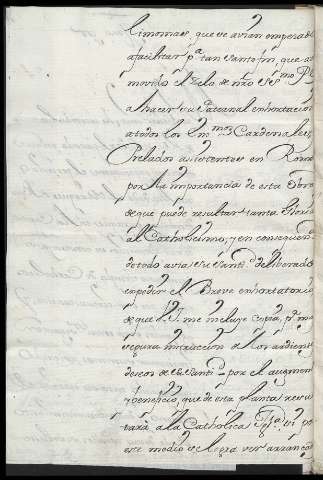 limosnas, que se avian empezado
a facilitar p.ª tan santo fin, que a
movido el zelo de nrõ SS.mo P.
a hacer su Paternal exhortacion
a todos los Em.mos Cardenales,
Prelados asistentes en Roma
por la importancia de esta Obra
de que puede resultar tanta gloria
al Catholicismo, y en consequen
de todo avia su Sant.d deliberado
expedir el Breve exhortatorio
de que V. me incluye copia, p.ª ma
segura instruccion de los ardientes
deseos de su Sant.d por el augmen
y beneficio, que de esta planta resul
tará a la Catholica Ygl.ª si por
este medio se logra ver arrancad